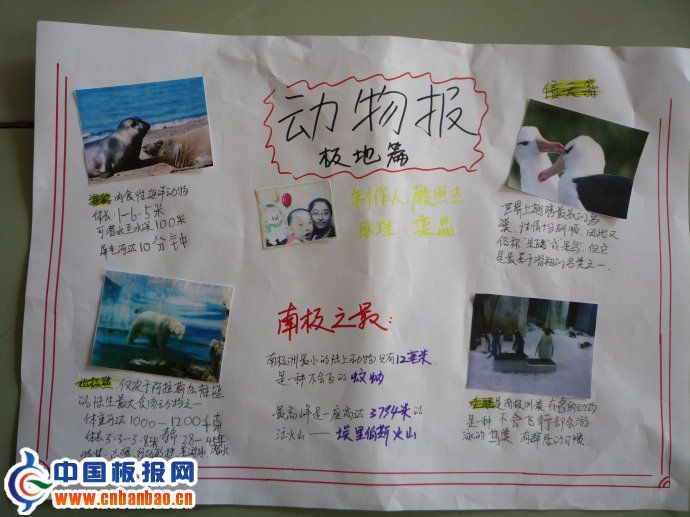 动物报
极地篇
制作人:殷熙杰
助理:栾晶
信天翁
海豹:肉食性海洋动物
体长:1-6.5米
可潜至水深100米
屏气可达10分钟
世界上翅膀最长的鸟
类,性情特别顺,因此又
俗称"
是最善于滑翔的鸟类之一.
南极之最:
南极洲最小的陆上动物只有12毫米,
是一种不会飞的蚊蚋
最高峰是一座高达3794米的
活火山——埃里伯斯火山
北极熊:仅次于阿拉斯加棕熊
的陆生最大食肉动物之一
体重可达1000-1200千克
体长3.3-3.8米
企鹅是南极洲最有名的动物
是一种不会飞行却会游
泳的鸟类.有群居的习惯.
中国板报网
www.cnbanbao.cn